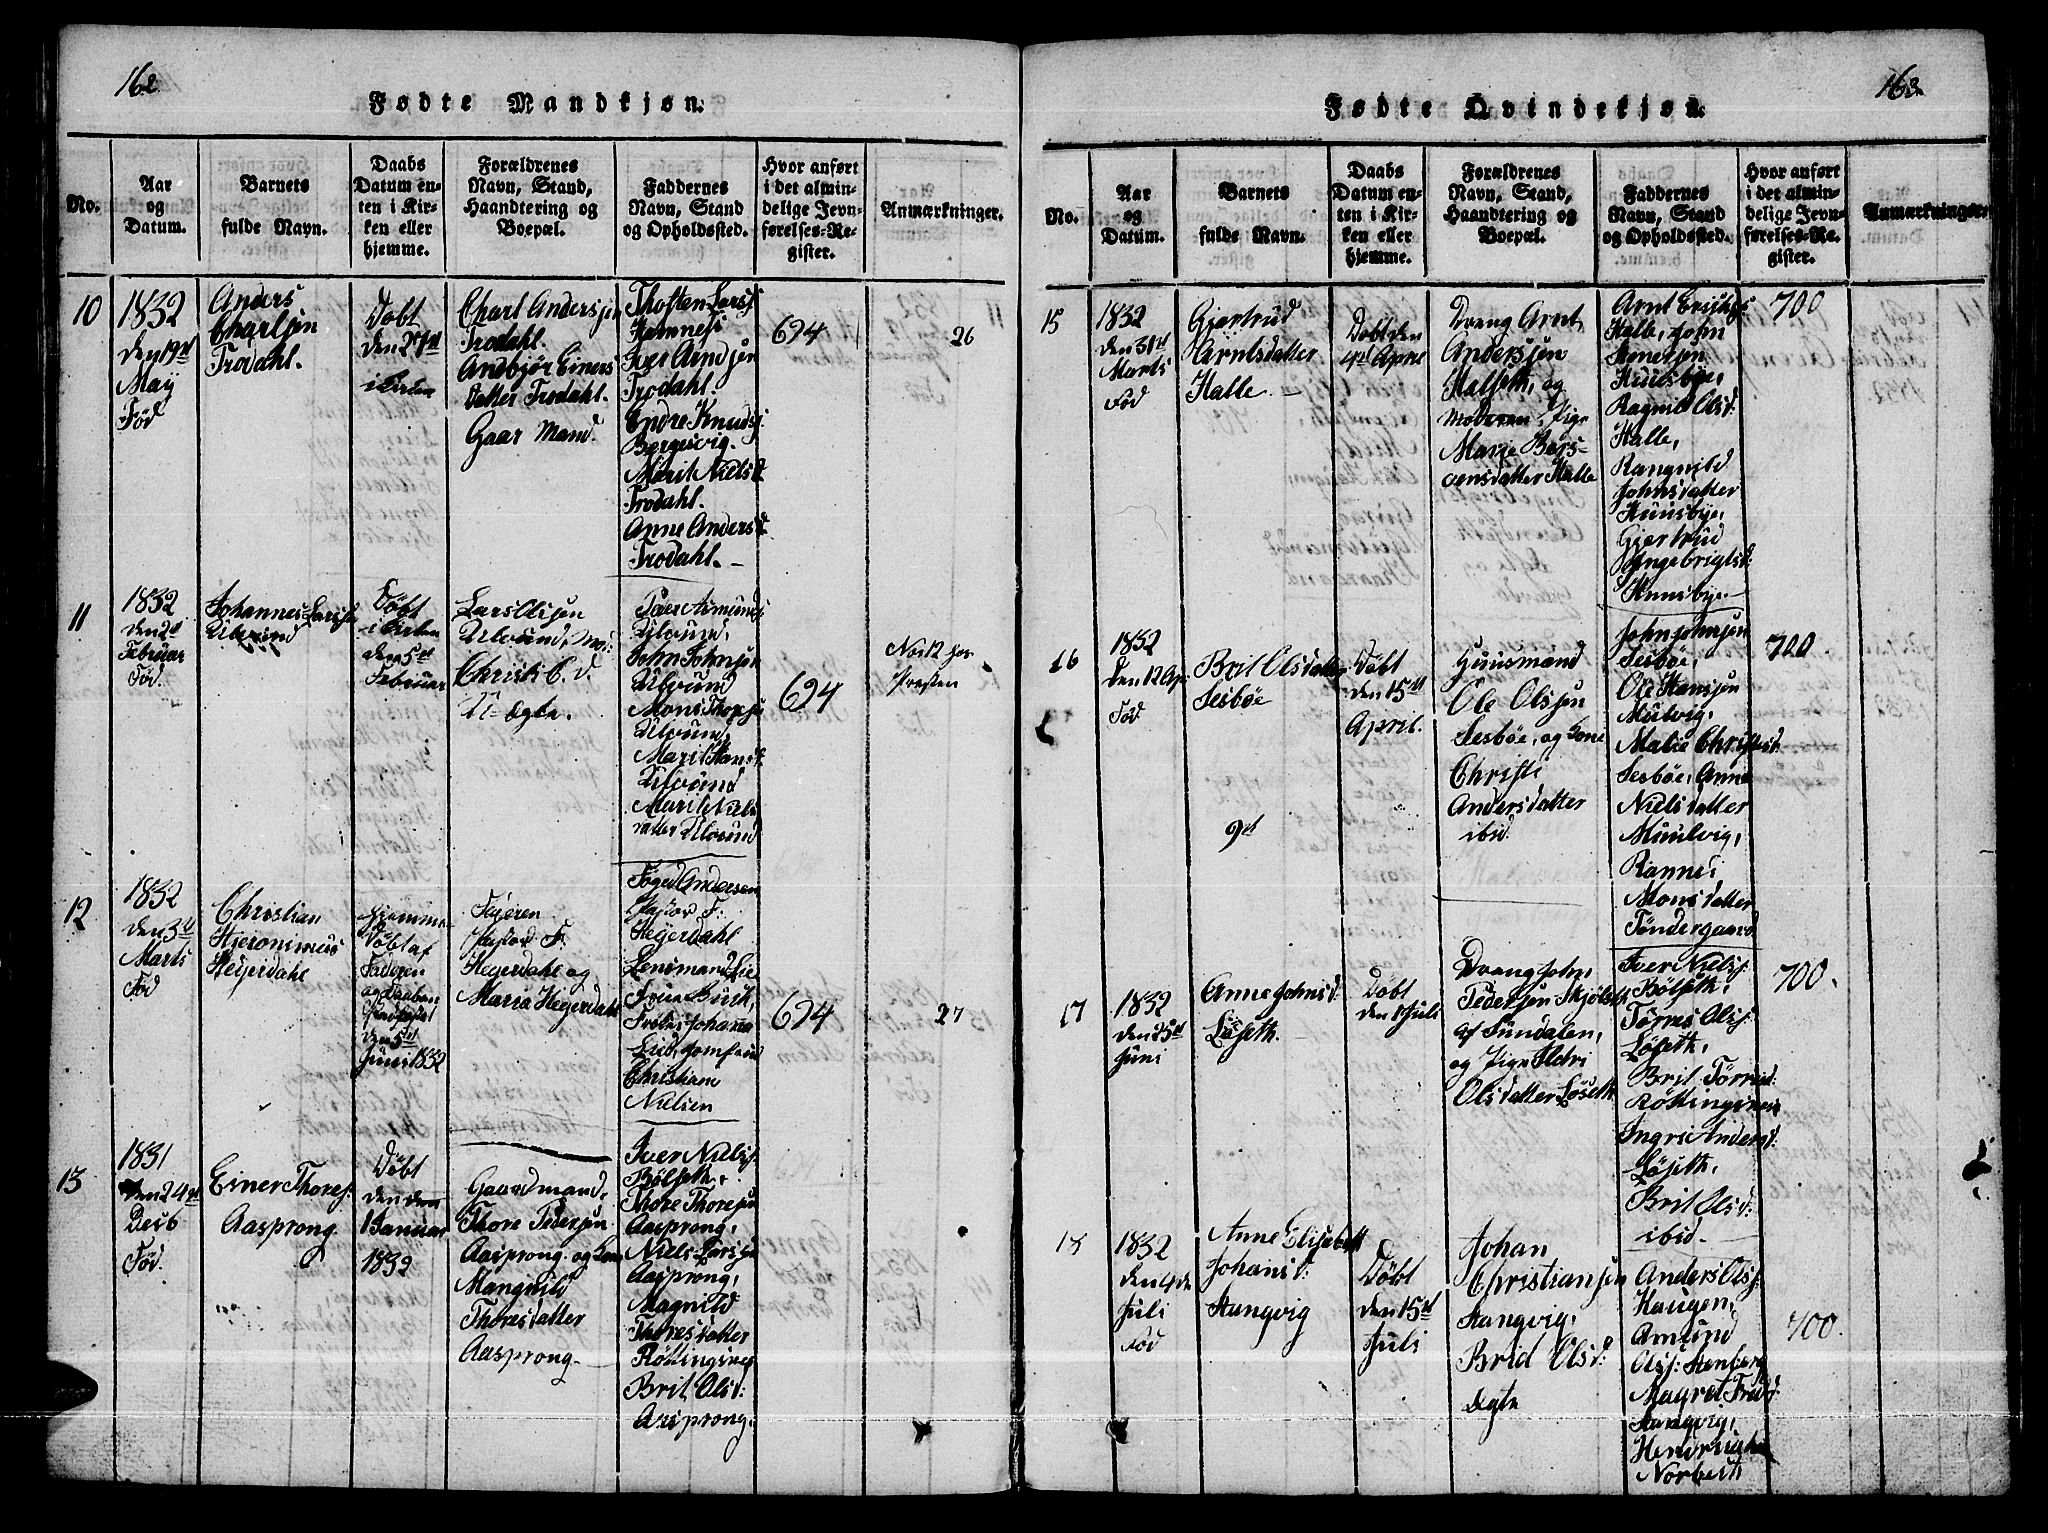 162
Fødte Mandkjøn.
No.
Aar
og
Datum.
Barnets
fulde Navn.
Daabs
Datum en-
ten i Kir-
ken eller
hjemme.
Forældrenes
Navn, Stand,
Haandtering og
Boepæl.
Faddernes
Navn, Stand
og Opholdssted.
Hvor anført
i det almin-
delige Jevn-
førelses-Re-
gister.
Anmærkninger.
10
1832
den 19de
May
Fød
Anders
Charlsen
Trodahl.
Døbt
den 27de
i Kirken
Charl Andersen
Trodahl.
Andbjør Einers
datter Trodahl.
Gaar Mand.
Thosten Larss
Iver Arndsen
Trodahl.
Endre Knuds:
Bergsvig.
Marit Niels d
Trodahl.
Anne Anders d
Trodahl.
694
26
11
1832
den 2de
Februar
Fød.
Johannes Larss
Ulvund
Døbt
i Kirken
den 5te
Februar
Lars Olsen
Ulvund,
Christi O. d.
U- Ægte.
Iver Asmunds
Ulvund,
John Johnsen
Ulvund
Mons Thoresen
Ulvund,
Marit Hansd
Ulvund
Marit Niels
datter Ulvund
694
No 12 hos
Presten
12
1832
den 3de
Marts
Fød
Christian
Hjeronimus
Hejerdahl
Hjemme
Døbt af
Faderen
og Daaben
den 5te
Juni 1832
Pastor F:
Hejerdahl og
Maria Hejerdahl
Foged Andersen
Pastor F:
Hejerdahl
Lensmand Lie
Frue Buck,
Johanna
Lie, Jomfrue
Christiane
Nielsen
694
27
13
1831
den 24de
Desb
Fød.
Einer Thores:
Aasprong.
Døbt
den
1 Januar
1832
Gaardmand,
Thore Pedersen
Aasprong. og Kone
Mangnild
Thoresdatter
Aasprong
Iver Niels:
Bølseth,
Thore Thoresen
Aasprong,
Niels Larsen
Aasprong,
Magnild
Thoresdatter
Røttingsnes
Brit Olsd:
Aasprong.
163
Fødte Qvindekjøn.
No.
Aar
og
Datum.
Barnets
fulde Navn.
Daabs
Datum en-
ten i Kir-
ken eller
hjemme.
Forældrenes
Navn, Stand,
Haandtering og
Boepæl.
Faddernes
Navn, Stand
og Opholdssted.
Hvor anført
i det almin-
delige Jevn-
førelses-Re-
gister.
Anmærkninger.
15
1832
den 31te
Marts
Fød
Gjertrud
Arntsdatter
Halle
Døbt den
April
Dreng Arnt
Anderssen
Halseth, og
Moderen, Pige
Marje Bers-
ensdatter Halle
Arnt Erichs:
Halle, John
Stenersen
Huusbye,
Ragnild Olsd:
Halle,
Rangnild
Johnsdatter
Huusbye,
Gjertrud
Ingebrigtsd:
Huusbye
700
16
1832
den 12 Ap:
Fød
Brit Olsdatter
Sesbøe
9de
Døbt
den 15de
April.
Huusmand
Ole Olssen
Sesbøe, og Kone
Christi
Andersdatter
ibid
John Johnsen
Sesbøe,
Ole Hanssen
Mulvig,
Malie Christsd:
Sesbøe, Anne
Nielsdatter
Muulvig,
Rannei
Monsdatter
Tøndergaard
700.
17
1832
den 25de
Juni
Anne Johnsd:
Løseth.
Døbt
den 1 Juli
Dreng John
Pedersen Skjølseth
af Sundalen,
og Pige Ildri
Olsdatter Løseth
Iver Niels:
Bølseth,
Tørres Ols:
Løseth,
Brit Tørrisd:
Røttingsnes
Ingri Andersd:
Løseth,
Brit Olsd:
ibid.
700.
18
1832
den 4de
Juli
Fød
Anne Elisabeth
Johansd:
Stangvig
Døbt
den 15de
Juli
Johan
Christiansen
Stangvig,
Brid Olsd:
Ægte
Anders Ols:
Haugen,
Amund
Ols: Stenberg
Magrit Fredd
Stangvig,
700.